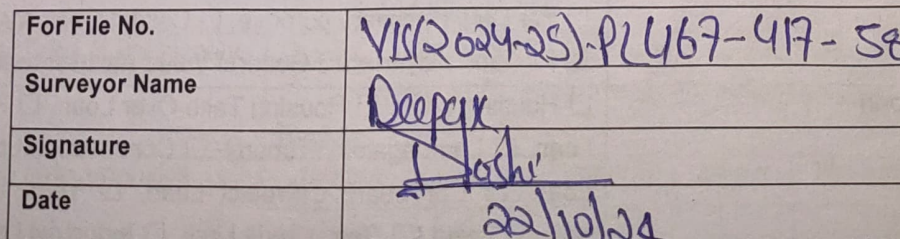 For File No. VIS(2024-25)-PL467-417-58
Surveyor Name Deepak
Signature Joshi
Date 22/10/24